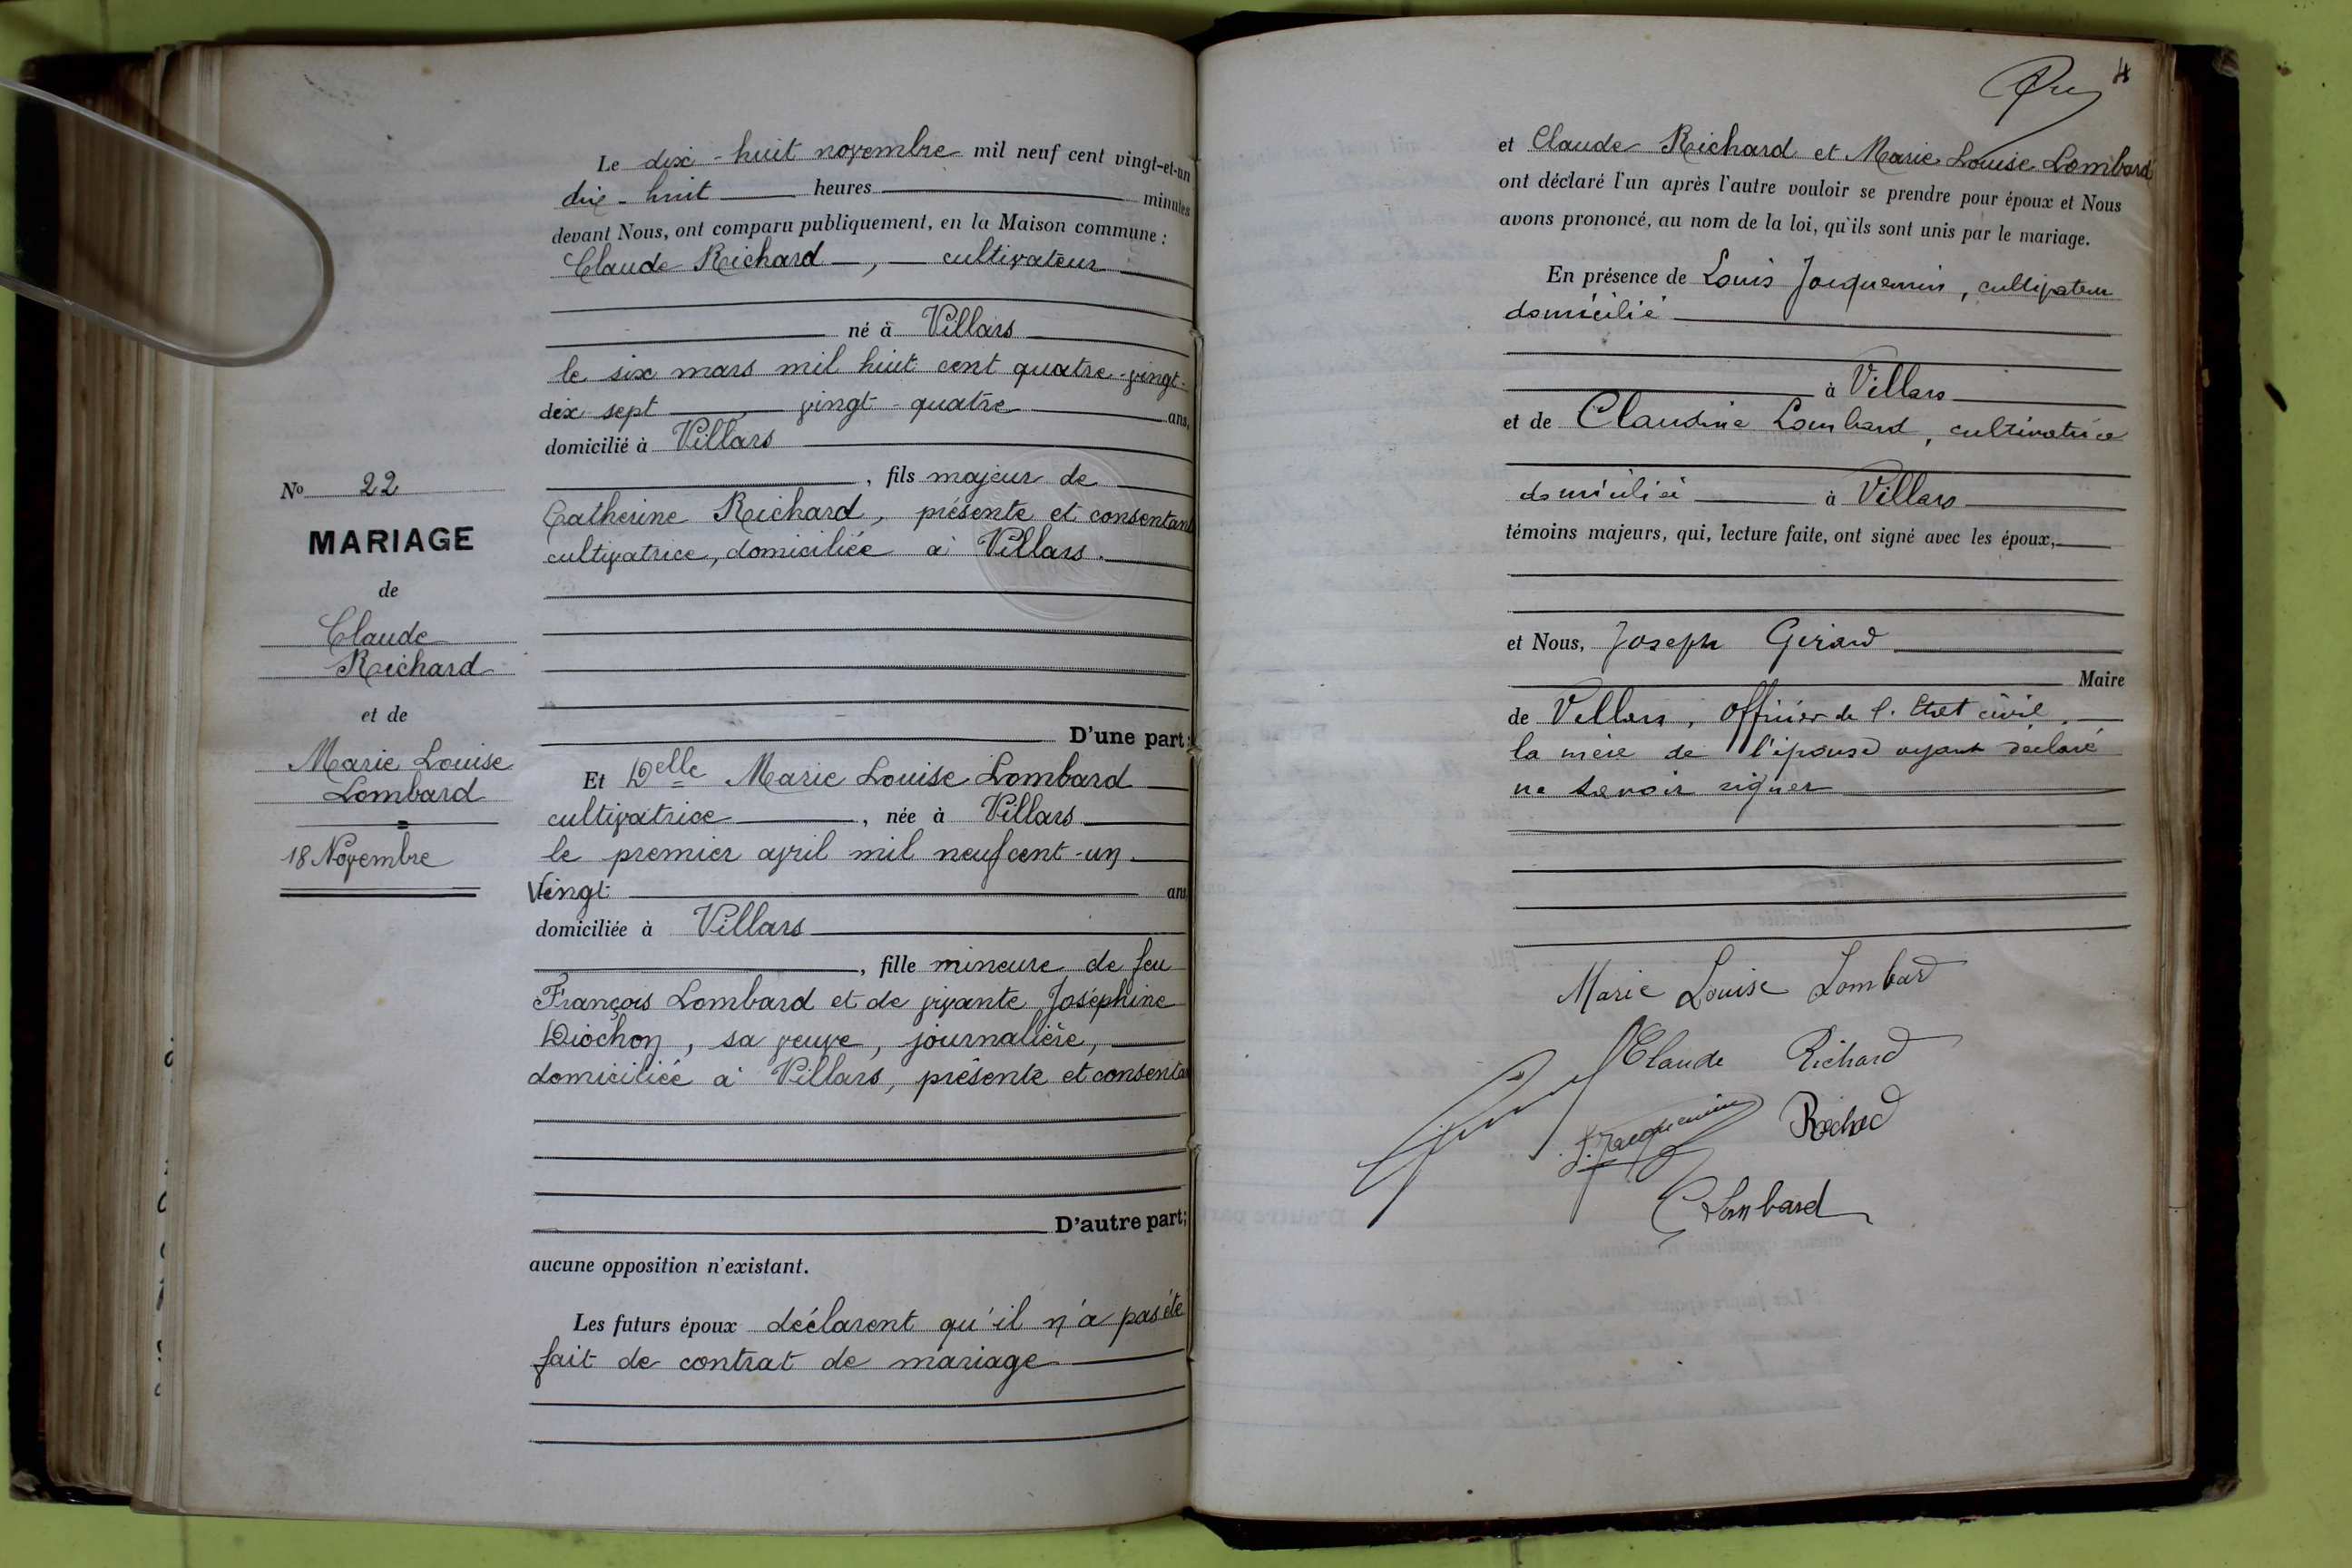 Le dix-huit novembre mil neuf cent vingt-et-un
dix-huit heures minutes
devant Nous, ont comparu publiquement, en la Maison commune :
Claude Richard, cultivateur
né à Villars
le six mars mil huit cent quatre-vingt-
dix sept vingt-quatre ans,
domicilié à Villars
, fils majeur de
Catherine Richard, présente et consentant
cultivatrice, domiciliée à Villars.
D'une part;
Et Delle Marie Louise Lombard
cultivatrice, née à Villars
le premier avril mil neuf cent-un
Vingt ans
domiciliée à Villars
, fille mineure de feu
François Lombard et de vivante Joséphine
Diochon, sa veuve, journalière,
domiciliée à Villars, présente et consenta
D'autre part;
aucune opposition n'existant.
Les futurs époux déclarent qu'il n'a pas été
fait de contrat de mariage
No 22
MARIAGE
de
Claude
Richard
et de
Marie Louise
Lombard
18 Novembre
4
et Claude Richard et Marie Louise Lombard
ont déclaré l'un après l'autre vouloir se prendre pour époux et Nous
avons prononcé, au nom de la loi, qu'ils sont unis par le mariage.
En présence de Louis Jacquemin, cultivateur
domicilié
à Villars
et de Claudine Lombard, cultivatrice
domicilié à Villars
témoins majeurs, qui, lecture faite, ont signé avec les époux,
et Nous, Joseph Girard
Maire
de Villars, Officier de l'Etat civil.
la mère de l'épouse ayant déclaré
ne savoir signer
Marie Louise Lombard
Claude Richard
Richard
L. Jacquemin
C Lombard